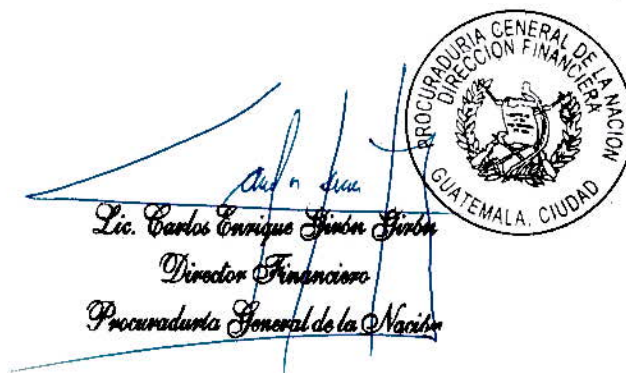 PROCURADURIA GENERAL DE LA NACION
DIRECCION FINANCIERA
GUATEMALA, CIUDAD
Lic. Carlos Enrique Girón Girón
Director Financiero
Procuraduría General de la Nación